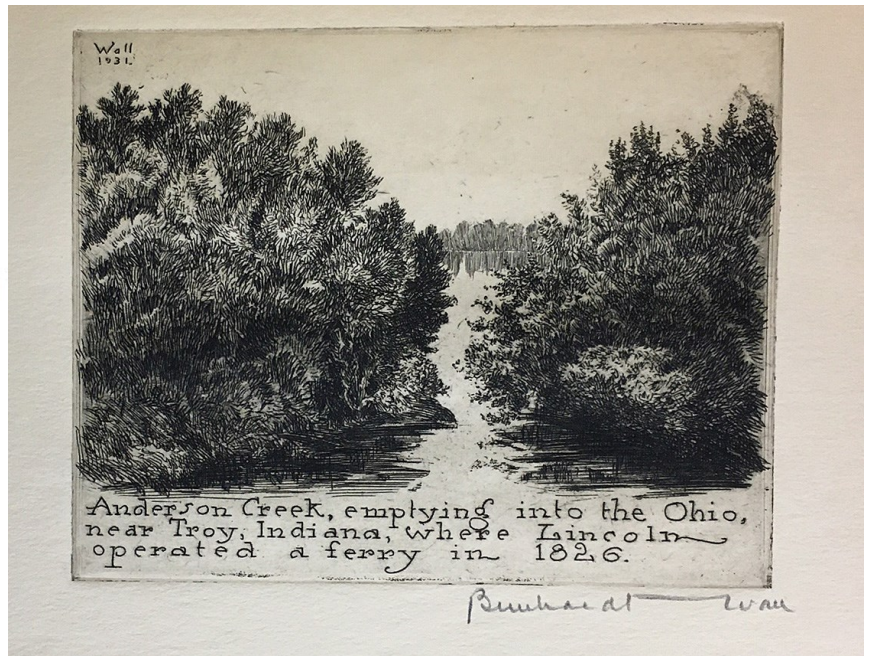 Wall
1931.
Anderson Creek, emptying into the Ohio,
near Troy, Indiana, where Lincoln
operated a ferry in 1826.
Bernhardt Wall